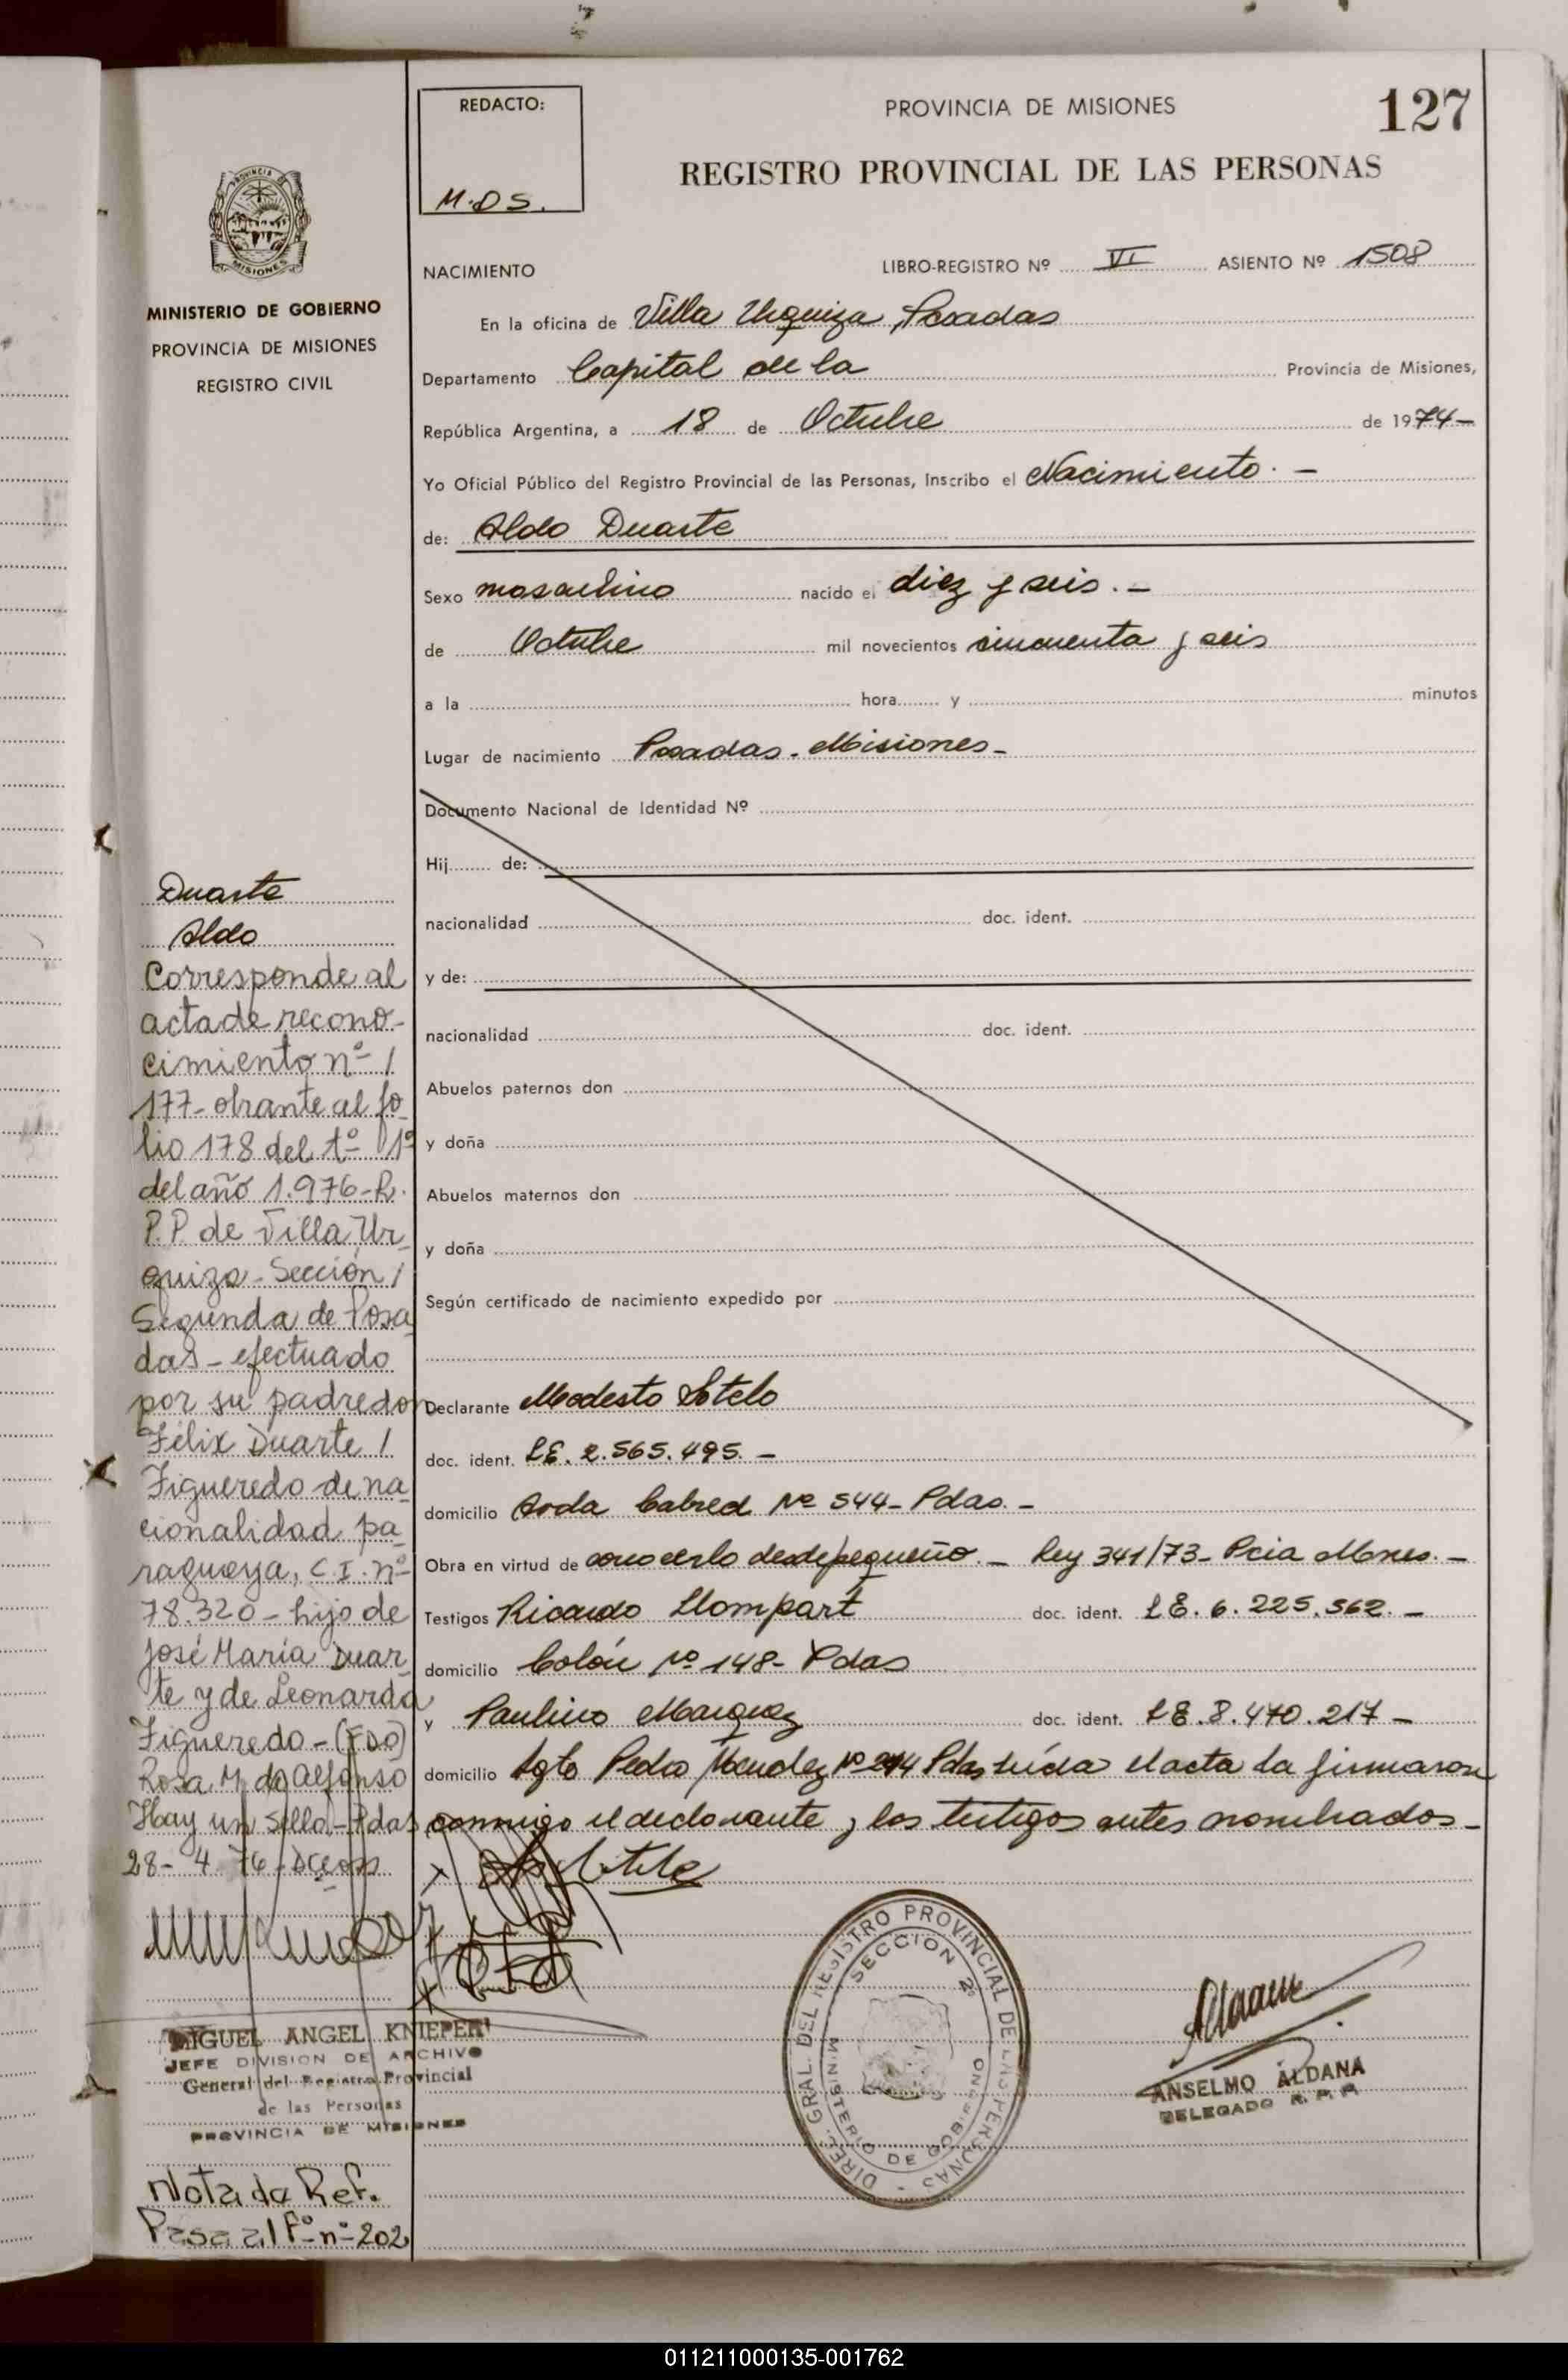 REDACTO:
M.DS.
PROVINCIA DE MISIONES
127
REGISTRO PROVINCIAL DE LAS PERSONAS
PROVINCIA DE
MISIONES
MINISTERIO DE GOBIERNO
PROVINCIA DE MISIONES
REGISTRO CIVIL
NACIMIENTO
LIBRO-REGISTRO Nº VI ASIENTO Nº 1508
En la oficina de Villa Urquiza, Posadas
Departamento Capital de la Provincia de Misiones,
República Argentina, a 18 de Octubre de 1974-
Yo Oficial Público del Registro Provincial de las Personas, Inscribo el Nacimiento. -
de: Aldo Duarte
Sexo masculino nacido el diez y seis. -
de Octubre mil novecientos cincuenta y seis
a la hora y minutos
Lugar de nacimiento Posadas - Misiones -
Documento Nacional de Identidad Nº
Hij de:
nacionalidad doc. ident.
y de:
nacionalidad doc. ident.
Abuelos paternos don
y doña
Abuelos maternos don
y doña
Según certificado de nacimiento expedido por
Declarante Modesto Sotelo
doc. ident. LE. 2.565.495. -
domicilio Avda Cabred Nº 544 - Pdas. -
Obra en virtud de conocerlo desde pequeño. - Ley 341/73 - Pcia Mnes. -
Testigos Ricardo Llompart doc. ident. LE. 6.225.562. -
domicilio Colón Nº 148 - Pdas
y Paulino Marquez doc. ident. LE. 8.470.217 -
domicilio Sgto Pedro Mendez Nº Pdas Leída el acta la firmaron
conmigo el declarante y los testigos antes nombrados -
Duarte
Aldo
Corresponde al
acta de recono-
cimiento nº /
177 - obrante al fo-
lio 178 del tº 1º
del año 1.976 - R.
P.P. de Villa Ur-
quiza - Sección /
Segunda de Posa-
das - efectuado
por su padre don
Félix Duarte /
Figueredo de na-
cionalidad pa-
raguaya, C.I. nº
78.320 - hijo de
José María Duar-
te y de Leonarda
Figueredo - (FDO)
Rosa M. de Alfonso
Hay un sello - Pdas
28 - 4 - 76 -
MIGUEL ANGEL KNIEPER
JEFE DIVISION DE ARCHIVO
General del Registro Provincial
de las Personas
PROVINCIA DE MISIONES
Nota de Ref.
Pasa al Fº nº 202
DIREC. GRAL. DEL REGISTRO PROVINCIAL DE LAS PERSONAS -
SECCION 2º
MINISTERIO DE GOBIERNO
ANSELMO ALDANA
DELEGADO R. P. P.
011211000135-001762